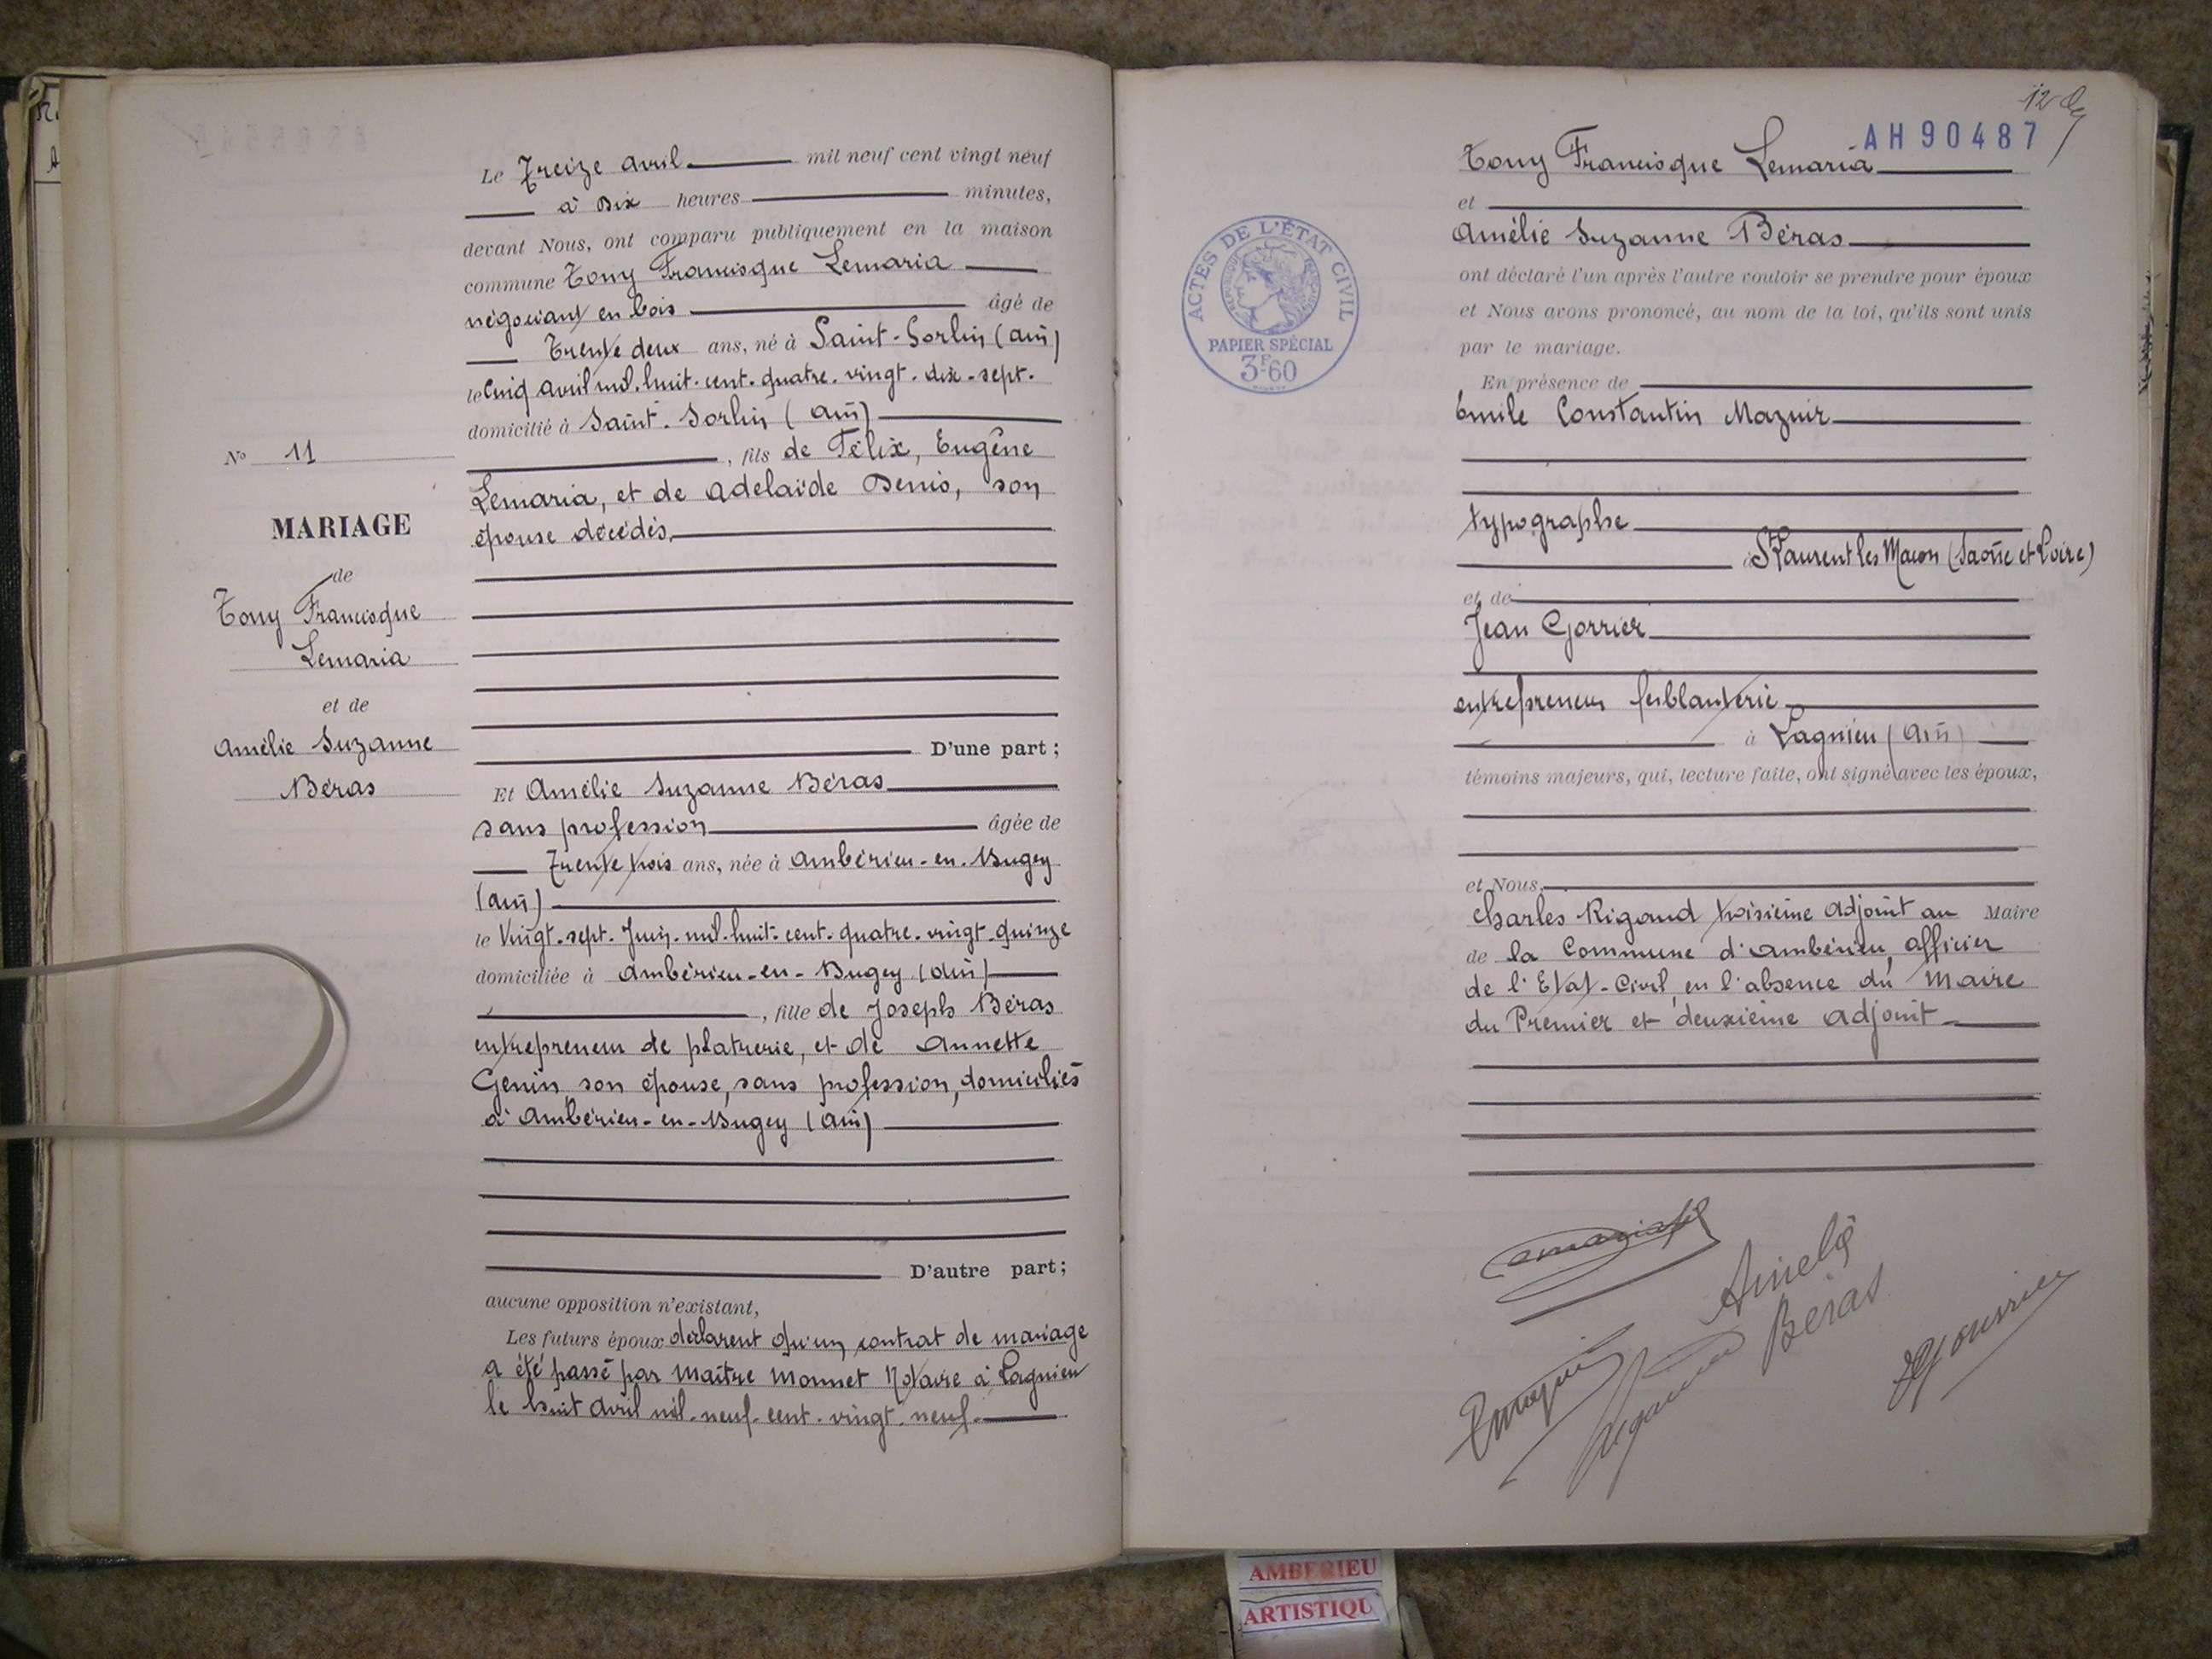 N° 11
MARIAGE
de
Tony Francisque
Lemaria
et de
Amélie Suzanne
Béras
Le Treize avril mil neuf cent vingt neuf
à Dix heures minutes,
devant Nous, ont comparu publiquement en la maison
commune Tony Francisque Lemaria
négociant en bois âgé de
Trente deux ans, né à Saint-Sorlin (Ain)
le Cinq avril mil-huit-cent-quatre-vingt-dix-sept.
domicilié à Saint-Sorlin (Ain)
, fils de Félix, Eugène
Lemaria, et de Adelaïde Denis, son
épouse décédés,
D'une part;
Et Amélie Suzanne Béras
sans profession âgée de
Trente trois ans, née à Ambérieu-en-Bugey
(Ain)
le Vingt-sept-Juin-mil-huit-cent-quatre-vingt-quinze
domiciliée à Ambérieu-en-Bugey (Ain)
, fille de Joseph Béras
entrepreneur de platrerie, et de Annette
Genin, son épouse, sans profession, domiciliés
à Ambérieu-en-Bugey (Ain)
D'autre part;
aucune opposition n'existant,
Les futurs époux déclarent qu'un contrat de mariage
a été passé par Maître Monnet Notaire à Lagnieu
le huit avril mil-neuf-cent-vingt-neuf.
12
AH90487
Tony Francisque Lemaria
et
Amélie Suzanne Béras
ont déclaré l'un après l'autre vouloir se prendre pour époux
et Nous avons prononcé, au nom de la loi, qu'ils sont unis
par le mariage.
En présence de
Emile Constantin Maznir
typographe
à St Laurent les Macon (Saône et Loire)
et de
Jean Gorrier
entrepreneur ferblanterie
à Lagnieu (Ain)
témoins majeurs, qui, lecture faite, ont signé avec les époux,
et Nous,
Charles Rigaud troisième adjoint au Maire
de la Commune d'Ambérieu, officier
de l'Etat-Civil, en l'absence du Maire
du Premier et deuxième adjoint
Amelie
Béras
ACTES DE L'ÉTAT CIVIL
PAPIER SPÉCIAL
3F60
AMBERIEU
ARTISTIQU